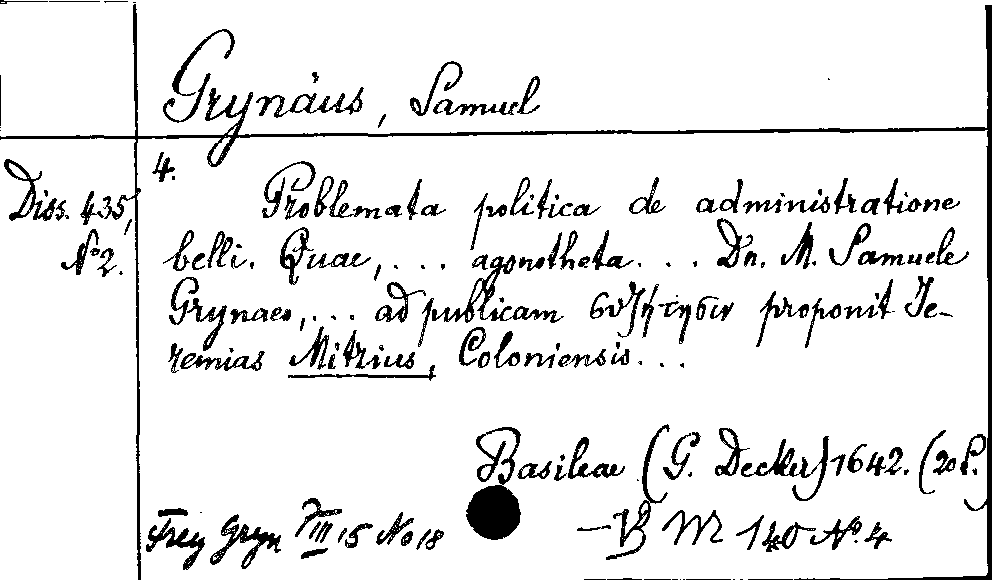 Grynäus, Samuel
4.
Diss. 435,
No 2.
Problemata politica de administratione
belli. Quae, ... agonotheta ... Dn. M. Samuele
Grynaeo, ... ad publicam συζήτησιν proponit Je-
remias Mitzius, Coloniensis ...
Basileae (G. Decker) 1642. (20 S.)
Frey Gryn VIII 15 No 18
— VB M 140 No. 4